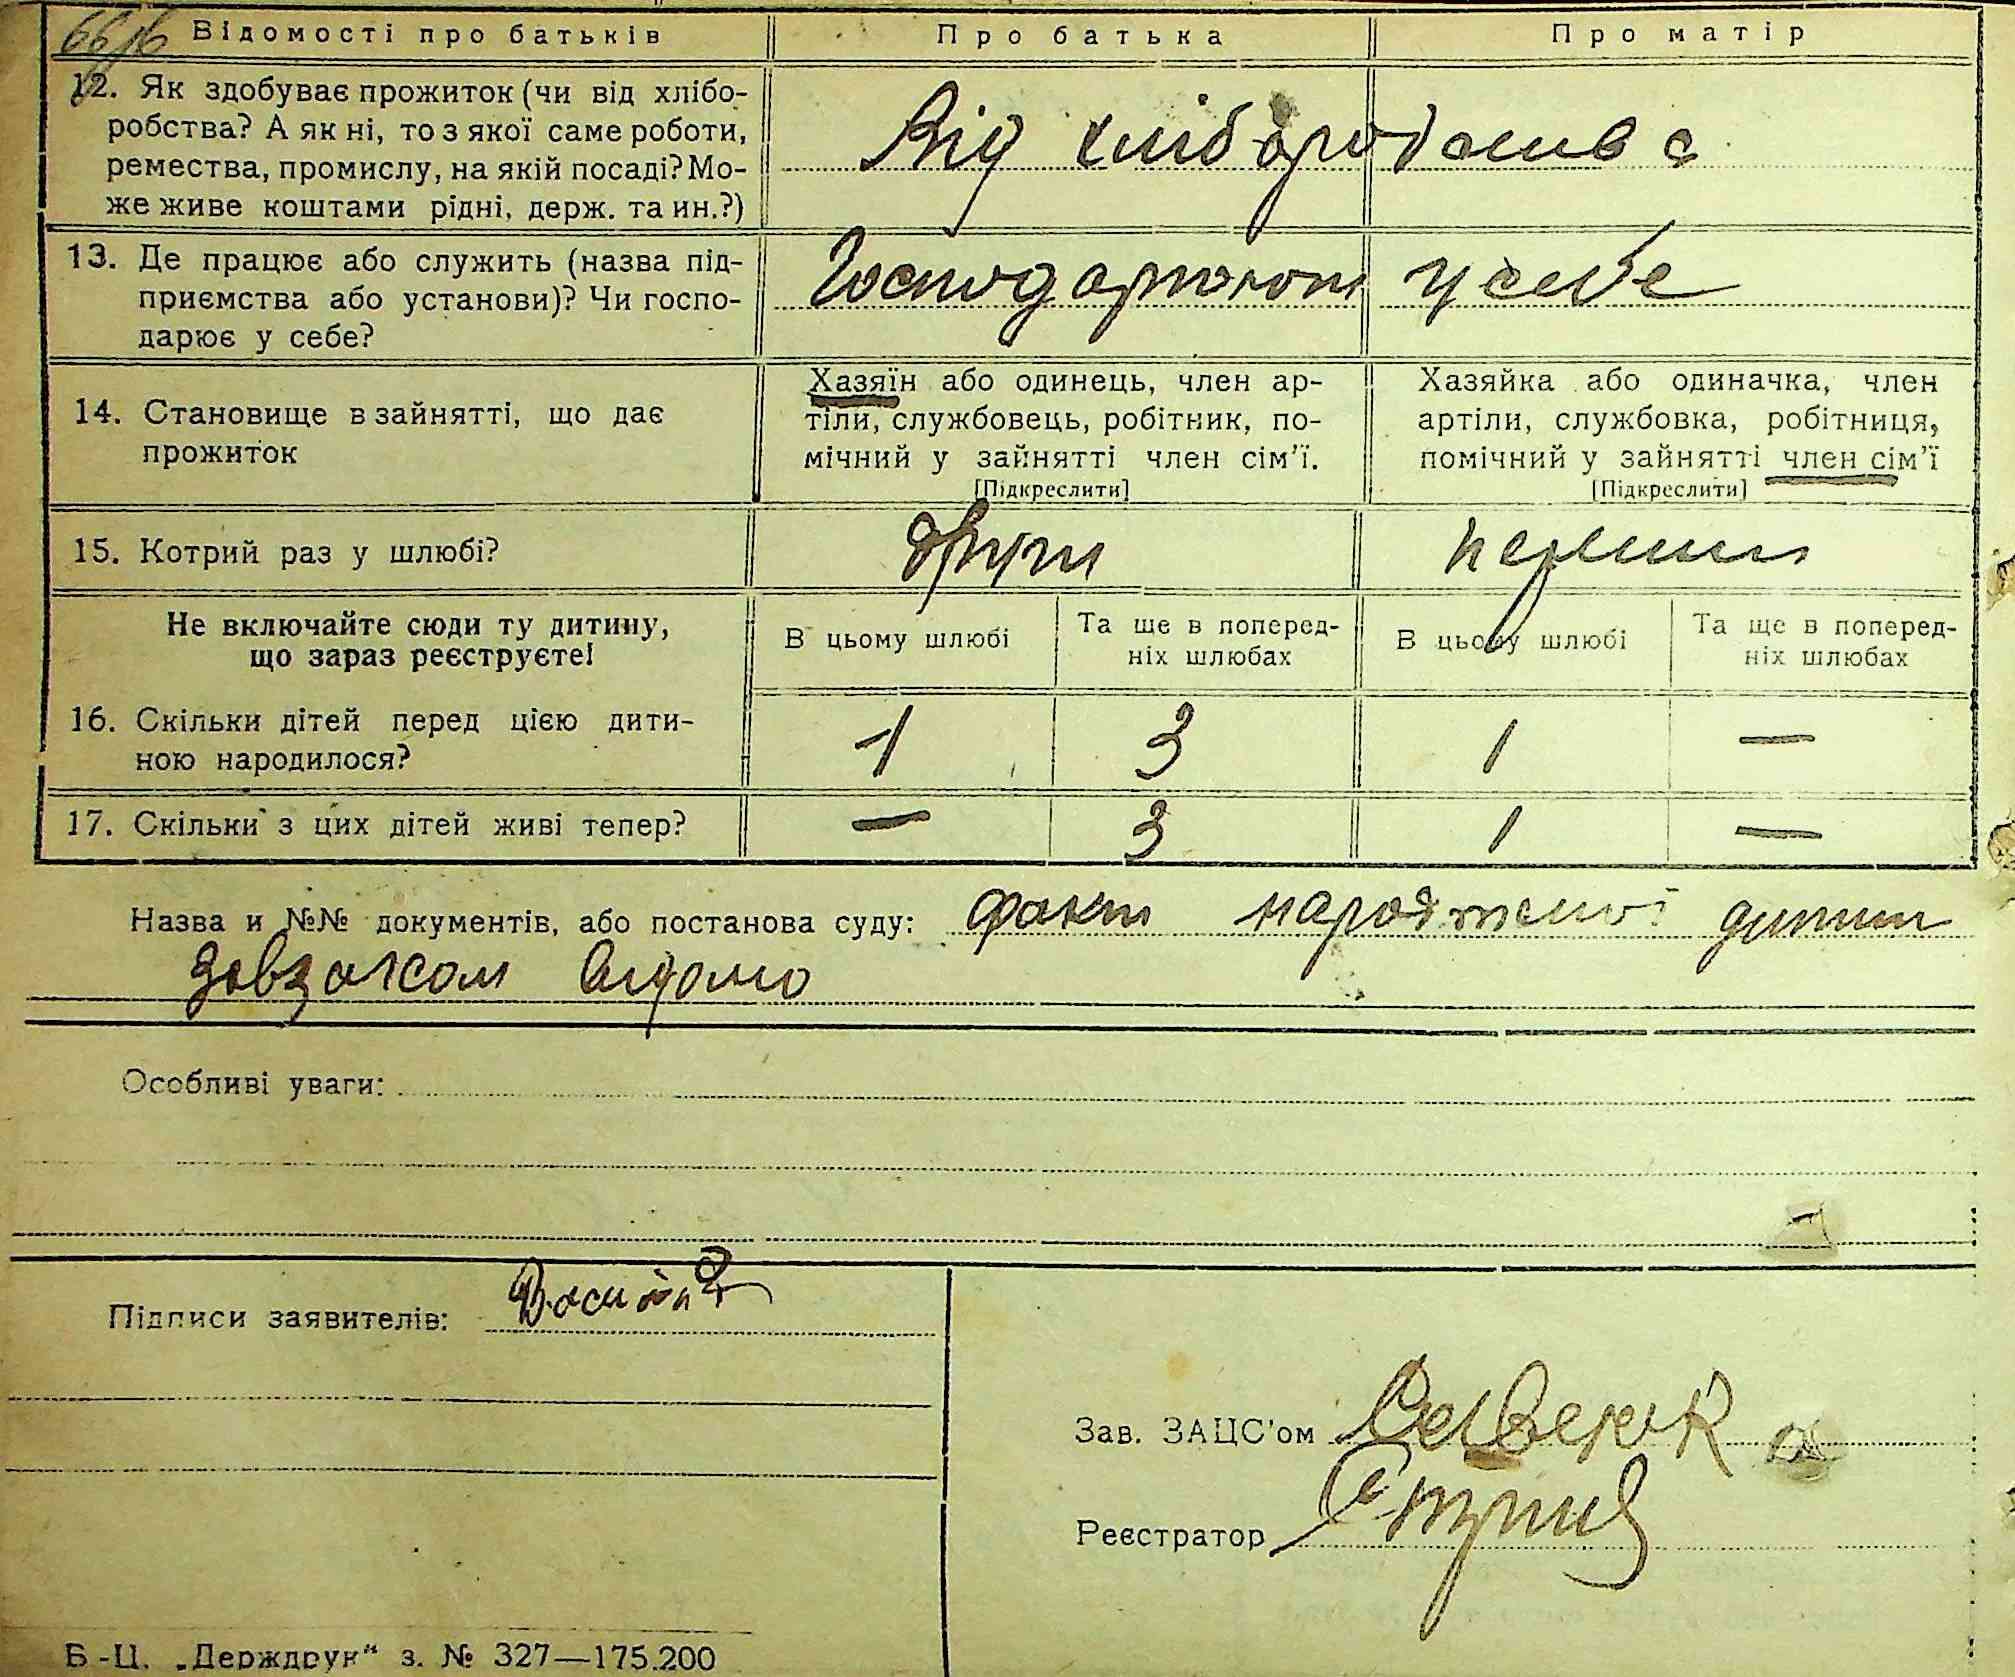 Відомості про батьків Про батька Про матір
12. Як здобуває прожиток (чи від хлібо-
робства? А як ні, то з якої саме роботи,
ремества, промислу, на якій посаді? Мо-
же живе коштами рідні, держ. та ин.?)
Від хліборобства
13. Де працює або служить (назва під-
приємства або установи)? Чи госпо-
дарює у себе?
Господарюют у себе
14. Становище в зайнятті, що дає
прожиток
Хазяїн або одинець, член ар-
тіли, службовець, робітник, по-
мічний у зайнятті член сім'ї.
[Підкреслити]
Хазяйка або одиначка, член
артіли, службовка, робітниця,
помічний у зайнятті член сім'ї
[Підкреслити]
15. Котрий раз у шлюбі? други первий
Не включайте сюди ту дитину,
що зараз реєструєте!
В цьому шлюбі
Та ще в поперед-
ніх шлюбах
В цьому шлюбі
Та ще в поперед-
ніх шлюбах
16. Скільки дітей перед цією дити-
ною народилося?
1 3 1 —
17. Скільки з цих дітей живі тепер? — 3 1 —
Назва и №№ документів, або постанова суду: факт народженої дитини
Завзагсом відомо
Особливі уваги:
Підписи заявителів:
Зав. ЗАЦС'ом
Реєстратор
Б.-Ц. „Держдрук“ з. № 327—175.200